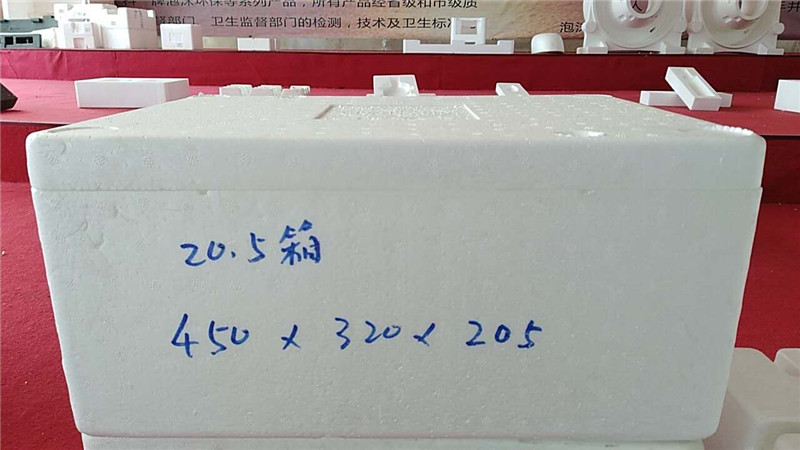 牌泡沫环保等系列产品，所有产品经省级和市级质
督部门、卫生监督部门的检测，技术及卫生标
泡
20.5箱
450 x 320 x 205